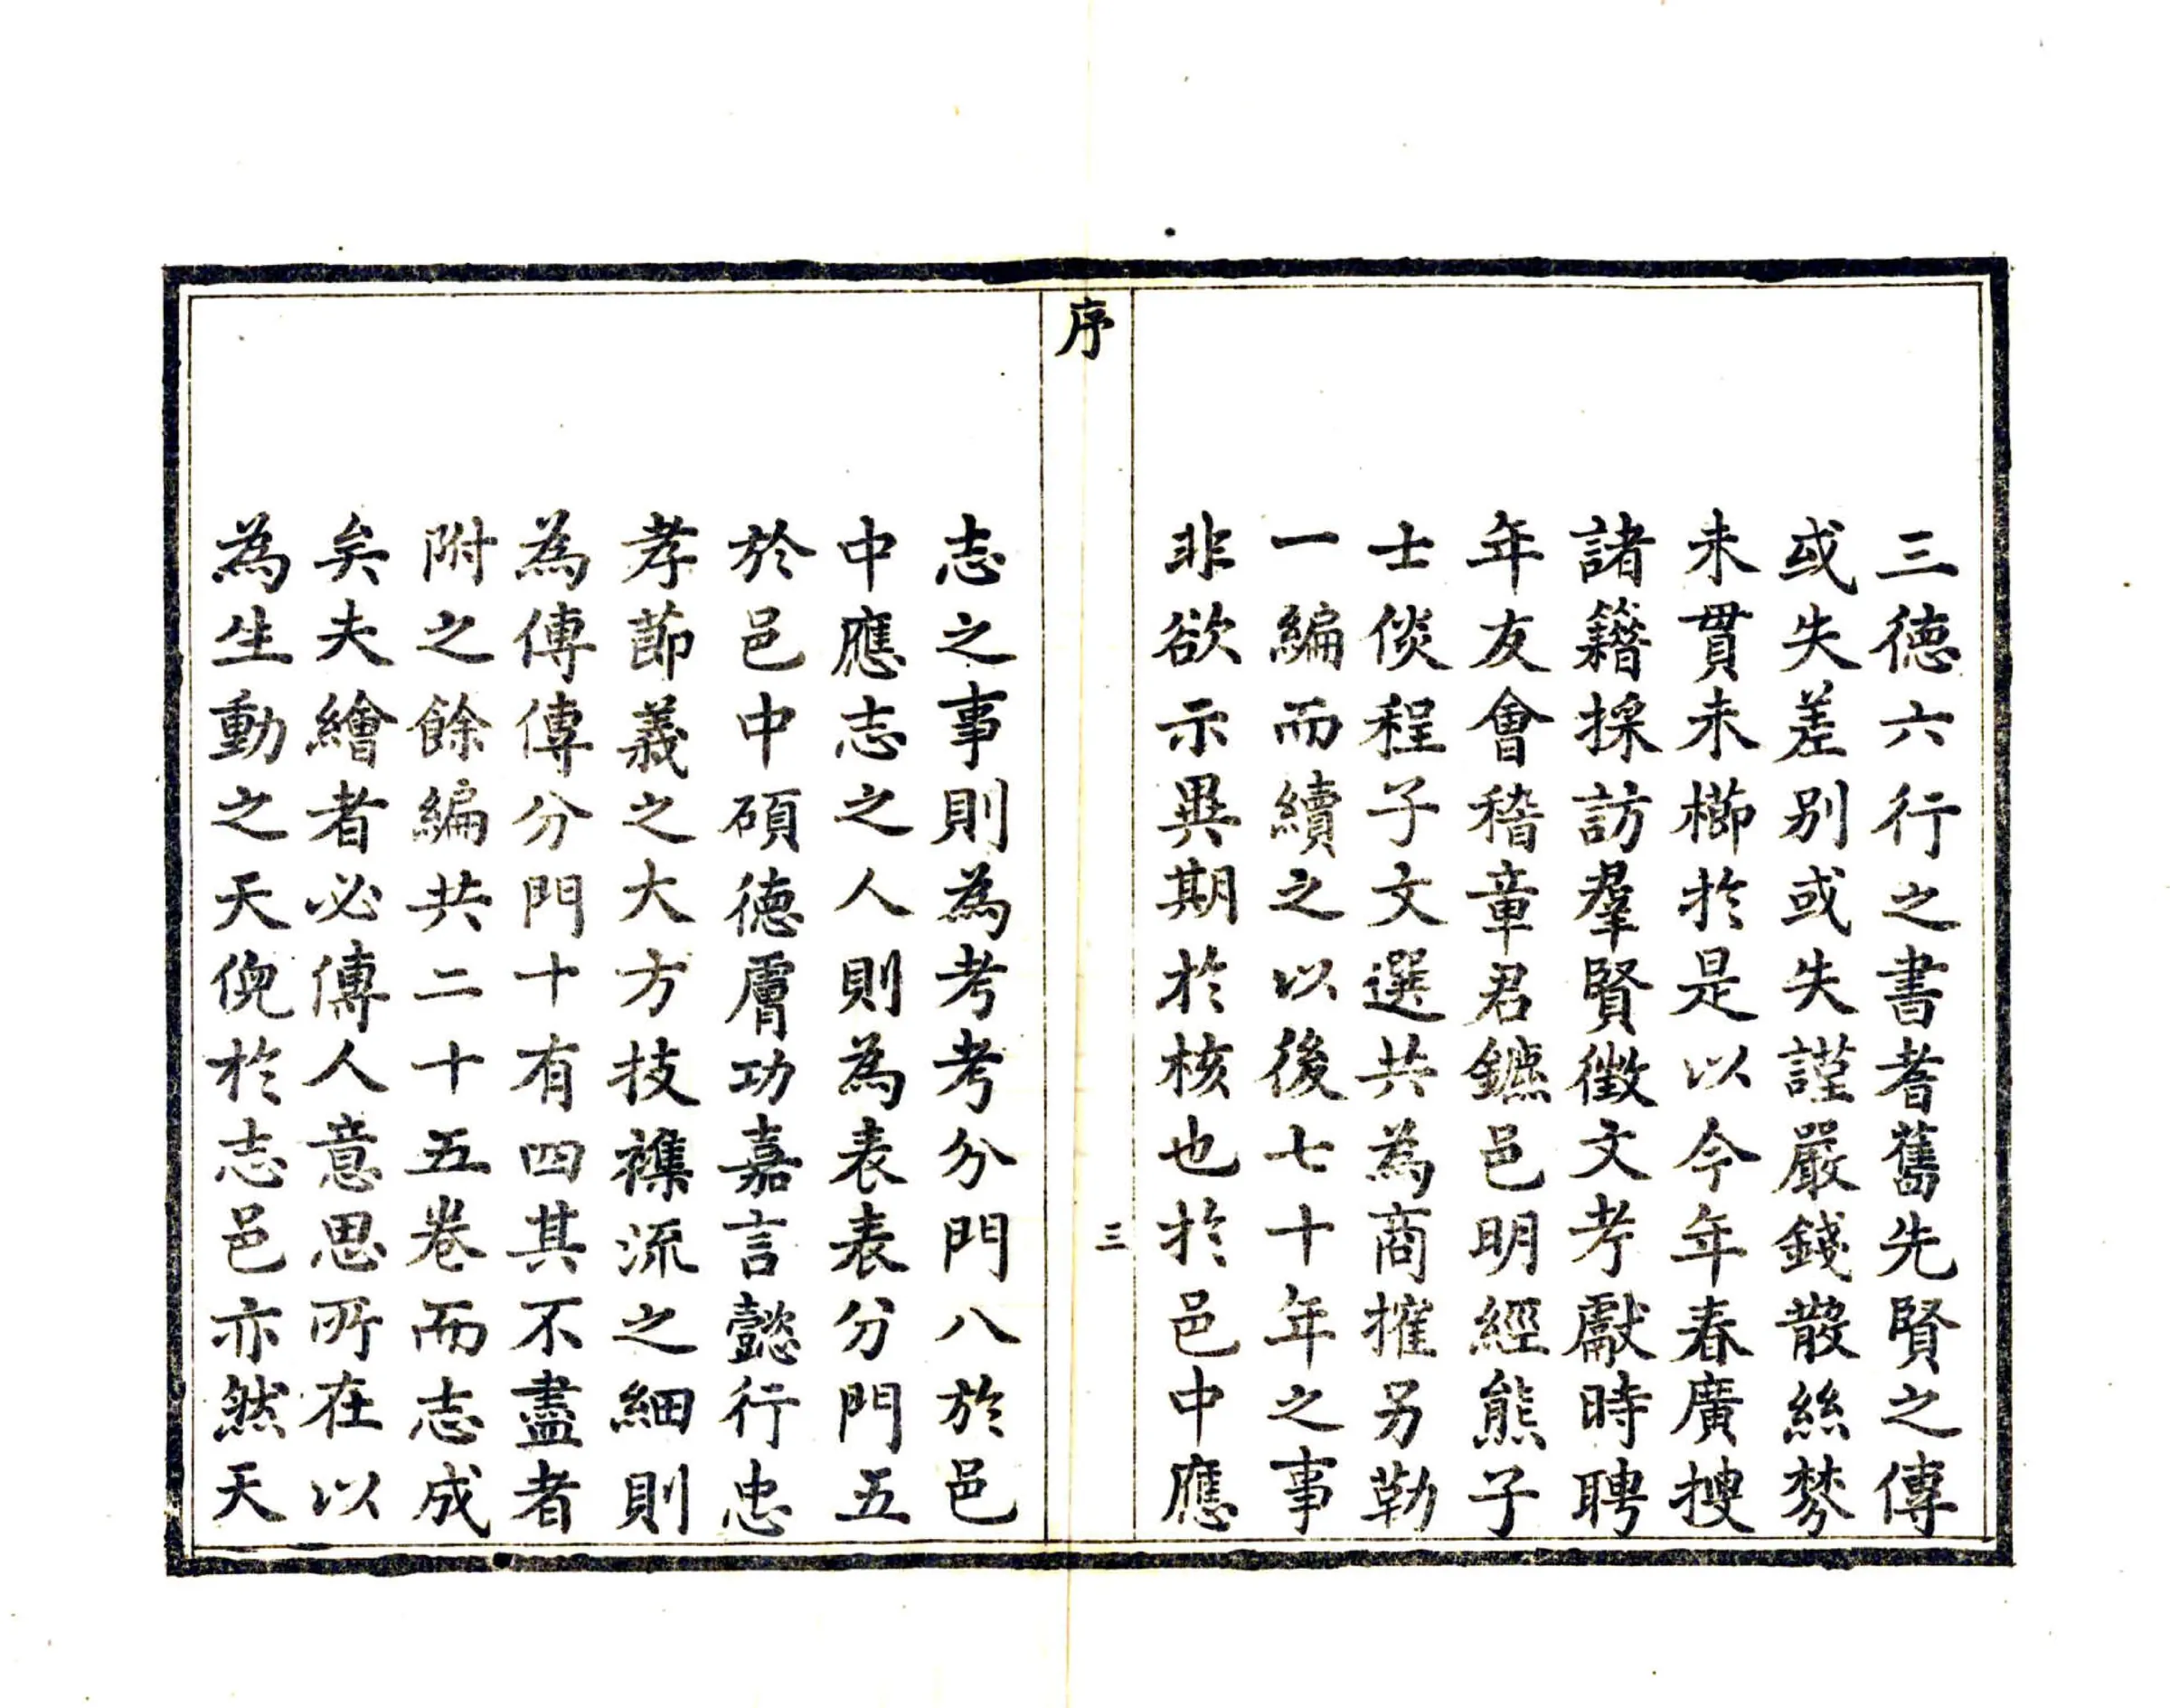 三德六行之書耆舊先賢之傳
或失差别或失謹嚴錢散絲棼
未貫未櫛於是以今年春廣搜
諸籍採訪羣賢徴文考獻時聘
年友會稽章君鑣邑明經熊子
士倓程子文選共為商搉另勒
一編而續之以後七十年之事
非欲示異期於核也於邑中應
序
三
志之事則為考考分門八於邑
中應志之人則為表表分門五
於邑中碩德膚功嘉言懿行忠
孝節義之大方技襍流之細則
為傳傳分門十有四其不盡者
附之餘編共二十五卷而志成
矣夫繪者必傳人意思所在以
為生動之天倪於志邑亦然天